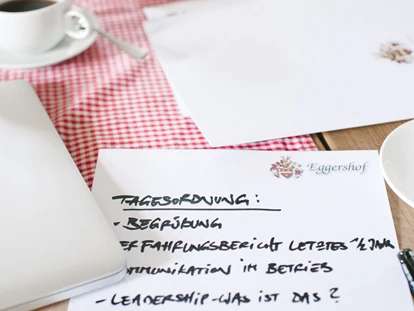 Eggershof
TAGESORDNUNG:
- BEGRÜßUNG
ERFAHRUNGSBERICHT LETZTES 1/2 JAHR
KOMMUNIKATION IM BETRIEB
- LEADERSHIP - WAS IST DAS?